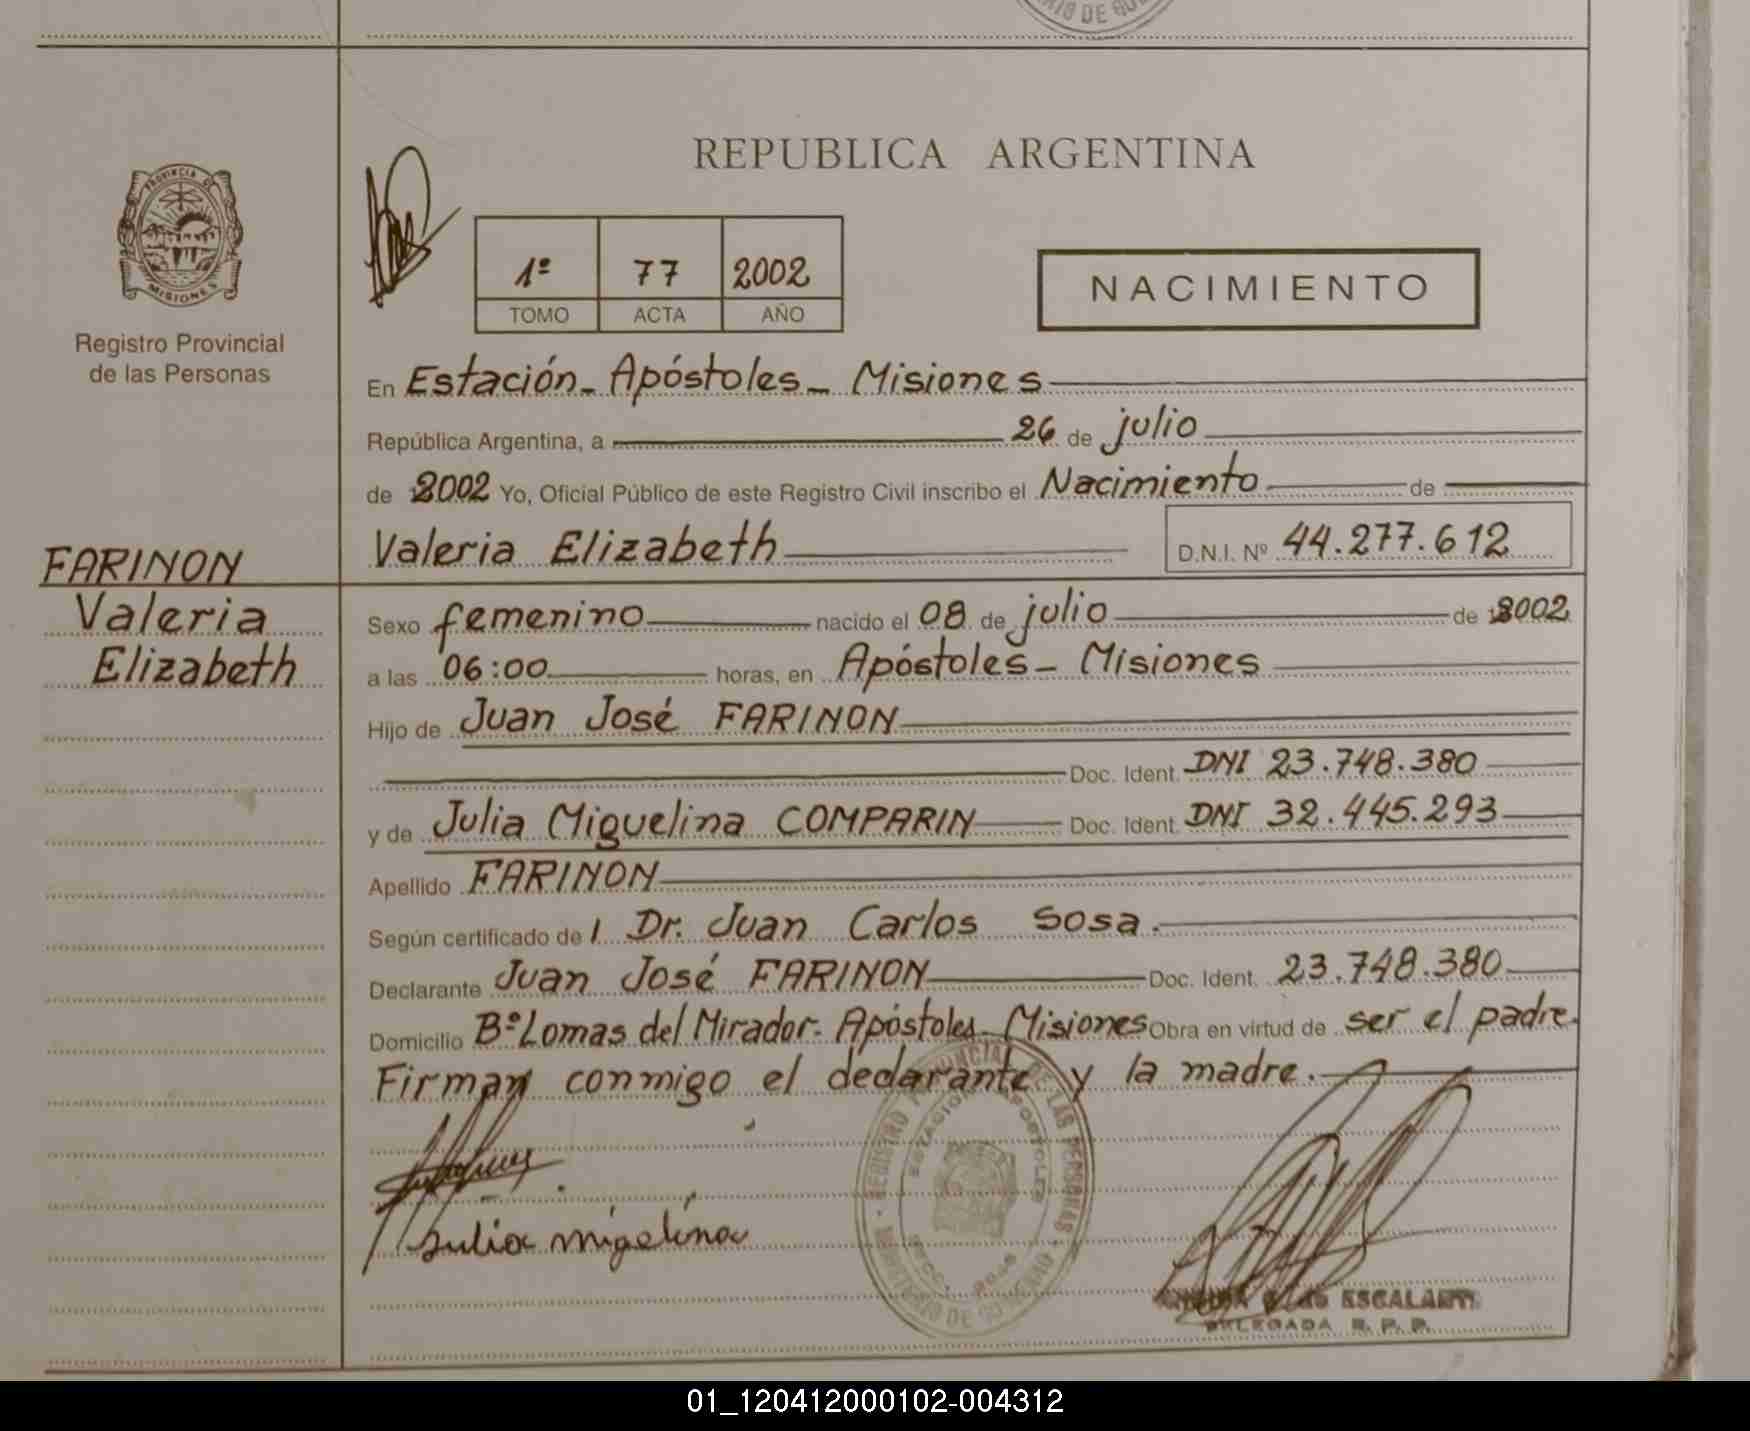 RIO DE QU
REPUBLICA ARGENTINA
PROVINCIA DE
MISIONES
Registro Provincial
de las Personas
1º 77 2002
TOMO ACTA AÑO
NACIMIENTO
En Estación - Apóstoles - Misiones
República Argentina, a 26 de julio
de 2002 Yo, Oficial Público de este Registro Civil inscribo el Nacimiento de
Valeria Elizabeth D.N.I. Nº 44.277.612
FARINON
Valeria
Elizabeth
Sexo femenino nacido el 08 de julio de 2002
a las 06:00 horas, en Apóstoles - Misiones
Hijo de Juan José FARINON
Doc. Ident. DNI 23.748.380
y de Julia Miguelina COMPARIN Doc. Ident. DNI 32.445.293
Apellido FARINON
Según certificado de / Dr. Juan Carlos Sosa.
Declarante Juan José FARINON Doc. Ident. 23.748.380
Domicilio Bº Lomas del Mirador - Apóstoles - Misiones Obra en virtud de ser el padre.
Firman conmigo el declarante y la madre.
REGISTRO PROVINCIAL DE LAS PERSONAS
ESTACION APOSTOLES
Julia migelina
ESCALANTE
DELEGADA R. P. P.
01_120412000102-004312